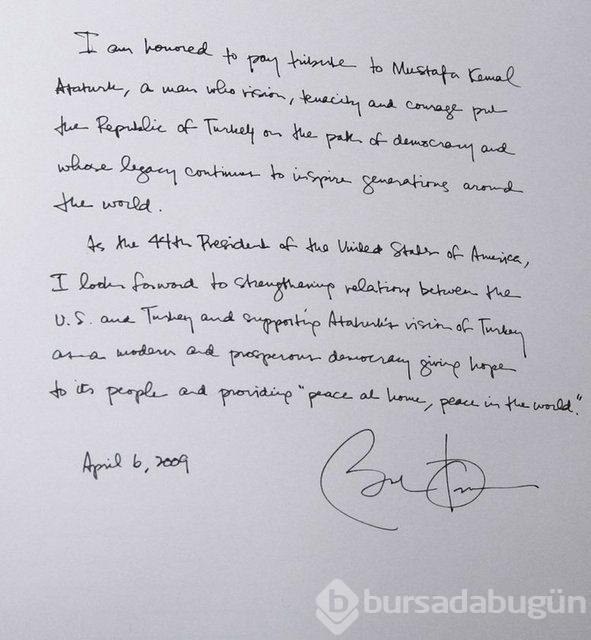 I am honored to pay tribute to Mustafa Kemal
Ataturk, a man who vision, tenacity and courage put
the Republic of Turkey on the path of democracy and
whose legacy continues to inspire generations around
the world.
As the 44th President of the United States of America,
I look forward to strengthening relations between the
U.S. and Turkey and supporting Ataturk's vision of Turkey
as a modern and prosperous democracy giving hope
to its people and providing "peace at home, peace in the world."
April 6, 2009
b bursadabugün